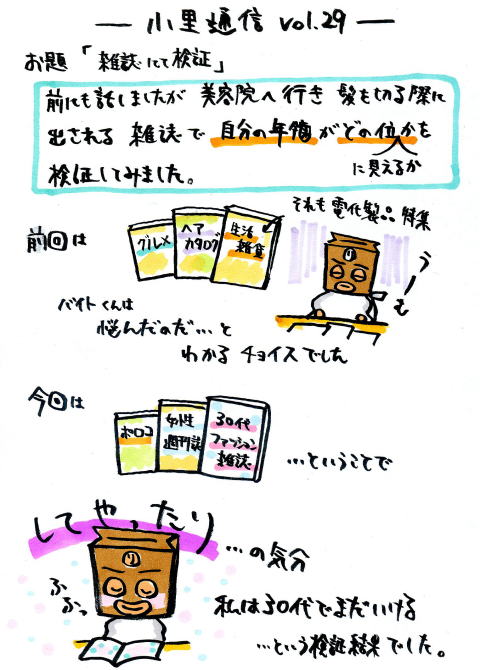 小里通信 vol.29
お題「雑誌にて検証」
前にも話しましたが 美容院へ行き 髪を切る際に
出される 雑誌で 自分の年齢がどの位かを
に見えるか
検証してみました。
それも電化製品特集
前回は
グルメ
ヘア
カタログ
生活
雑貨
うーむ
バイトくんは
悩んだのだ…と
わかる チョイスでした
今回は
ポロコ
女性
週刊誌
30代
ファッション
雑誌
…ということで
してやったり
…の気分
り
ふふっ
私は30代でまだいける
…という検証結果でした。